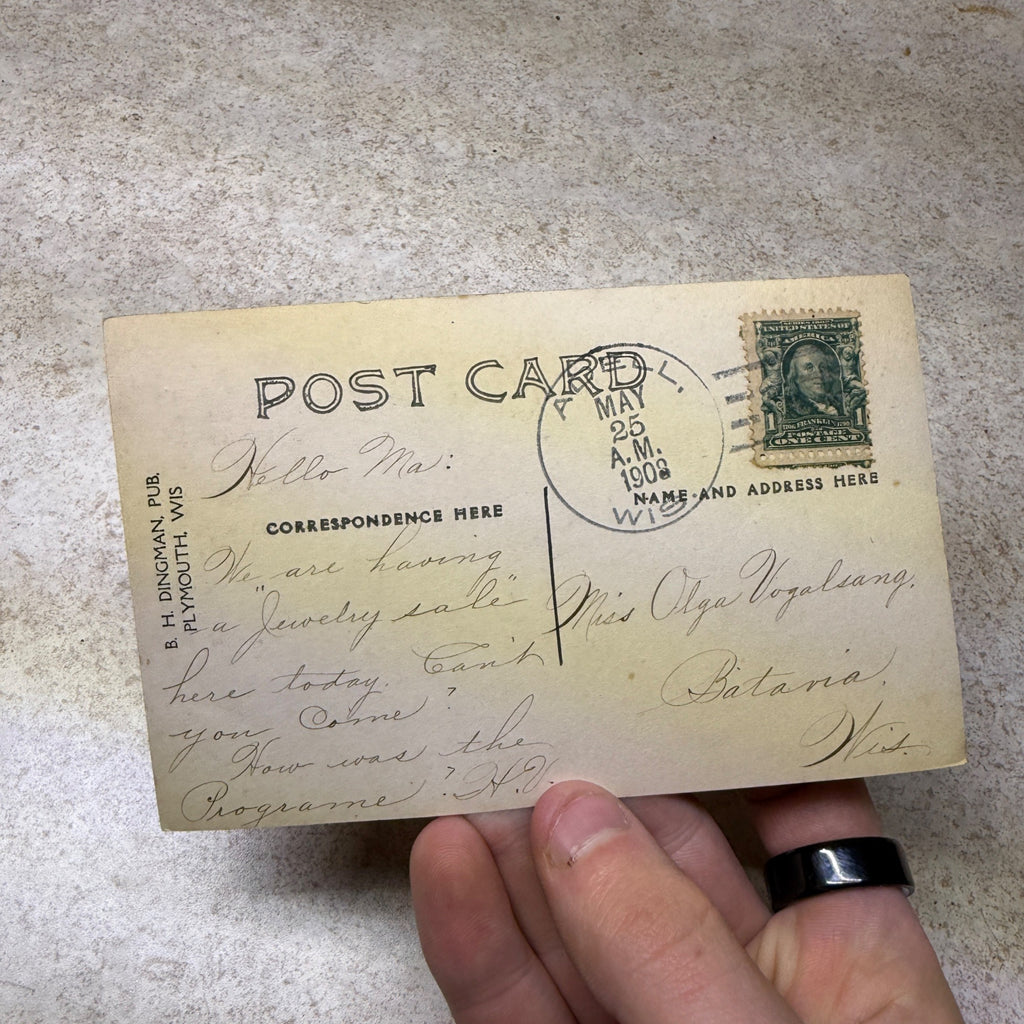 POST CARD
ADELL.
MAY
25
A.M.
1908
WIS.
SERIES 1902
UNITED STATES OF
AMERICA
1706 FRANKLIN 1790
1 1
POSTAGE
ONE CENT
B. H. DINGMAN, PUB.
PLYMOUTH, WIS
Hello Ma:
CORRESPONDENCE HERE
We are having
a "Jewelry sale"
here today. Can't
you Come?
How was the
Programe? H.V.
NAME AND ADDRESS HERE
Miss Olga Vogalsang.
Batavia.
Wis.